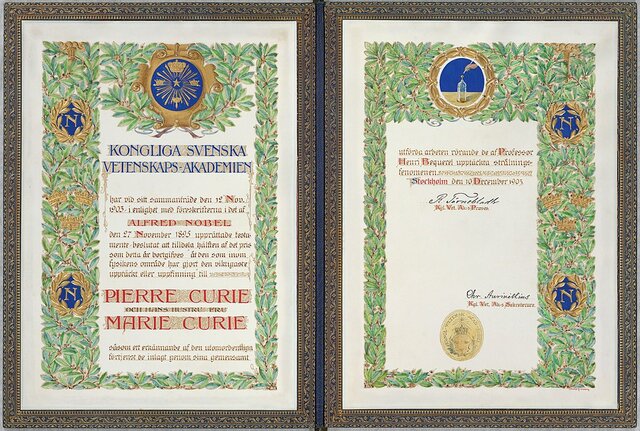 KONGLIGA SVENSKA
VETENSKAPS-AKADEMIEN
har vid sitt sammanträde den 12 Nov.
1903 i enlighet med föreskrifterna i det af
ALFRED NOBEL
den 27 November 1895 upprättade testa-
mente beslutat att tilldela hälften af det pris
som detta år bortgifves åt den som inom
fysikens område har gjort den viktigaste
upptäckt eller uppfinning till
PIERRE CURIE
OCH HANS HUSTRU FRU
MARIE CURIE
såsom ett erkännande af den utomordentliga
förtjenst de inlagt genom sina gemensamt
utförda arbeten rörande de af Professor
Henri Bequerel upptäckta strålnings-
fenomenen.
Stockholm den 10 December 1903
R. Törnebladh
Kgl. Vet. Ak:s Præses.
Chr. Aurivillius
Kgl. Vet. Ak:s Sekreterare.
N
N
N
N